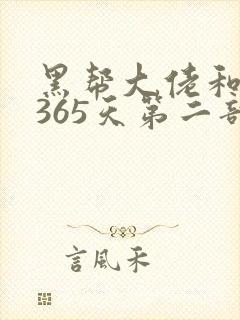 黑帮大佬和
365天第二部
言風禾